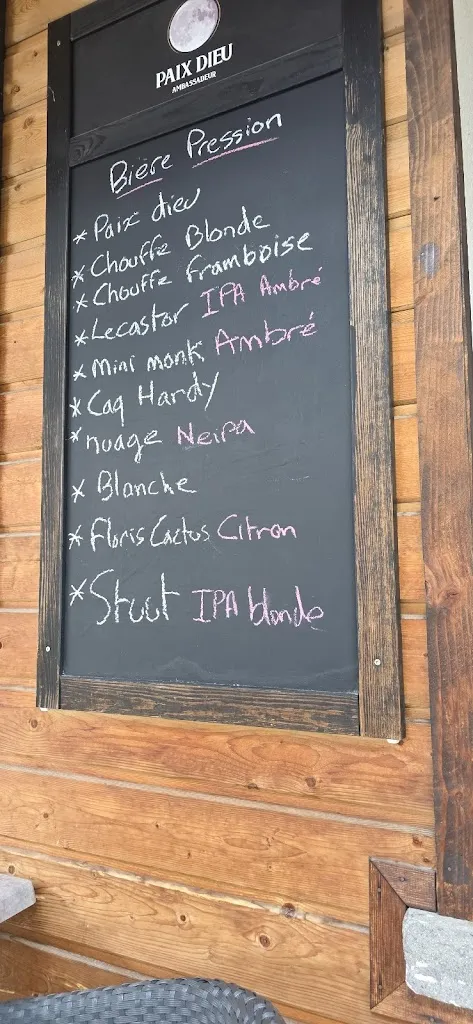 PAIX DIEU
AMBASSADEUR
Bière Pression
* Paix dieu
* Chouffe Blonde
* Chouffe framboise
* Lecastor IPA Ambré
* Mini monk Ambré
* Caq Hardy
* nuage Neipa
* Blanche
* Floris Cactus Citron
* Stuut IPA blonde